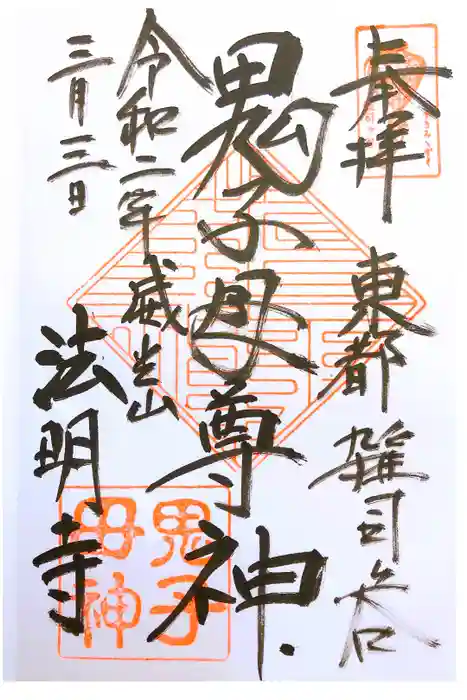 奉拝
東都 雑司谷
鬼子母尊神
令和二年
三月三日
威光山
法明寺
鬼子
母神